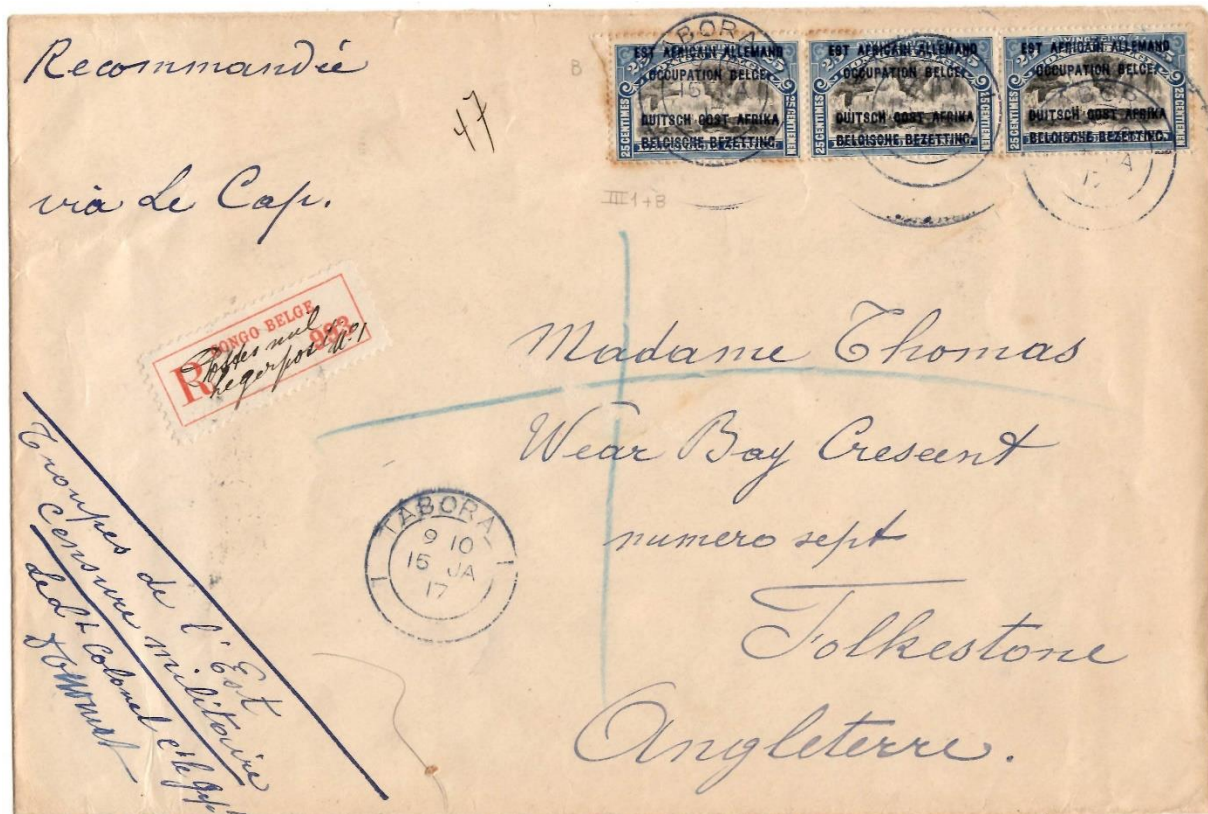 Recommandée
47
via Le Cap.
B
III 1 + B
EST AFRICAIN ALLEMAND
OCCUPATION BELGE.
DUITSCH OOST AFRIKA
BELGISCHE BEZETTING.
25 CENTIMES
EST AFRICAIN ALLEMAND
OCCUPATION BELGE.
DUITSCH OOST AFRIKA
BELGISCHE BEZETTING.
25 CENTIMES
EST AFRICAIN ALLEMAND
OCCUPATION BELGE.
DUITSCH OOST AFRIKA
BELGISCHE BEZETTING.
25 CENTIMES
25 CENTIEMEN
TABORA
CONGO BELGE
R 993
Legerpost No 1
Madame Thomas
Wear Bay Crescent
numero sept
Folkestone
Angleterre.
TABORA
9 10
15 JA
17
Troupes de l'Est
Censure militaire
Le Lt Colonel
Thomas